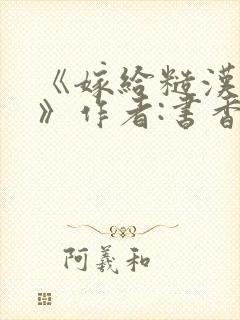 《嫁给糙漢
》作者:書香
阿羲和